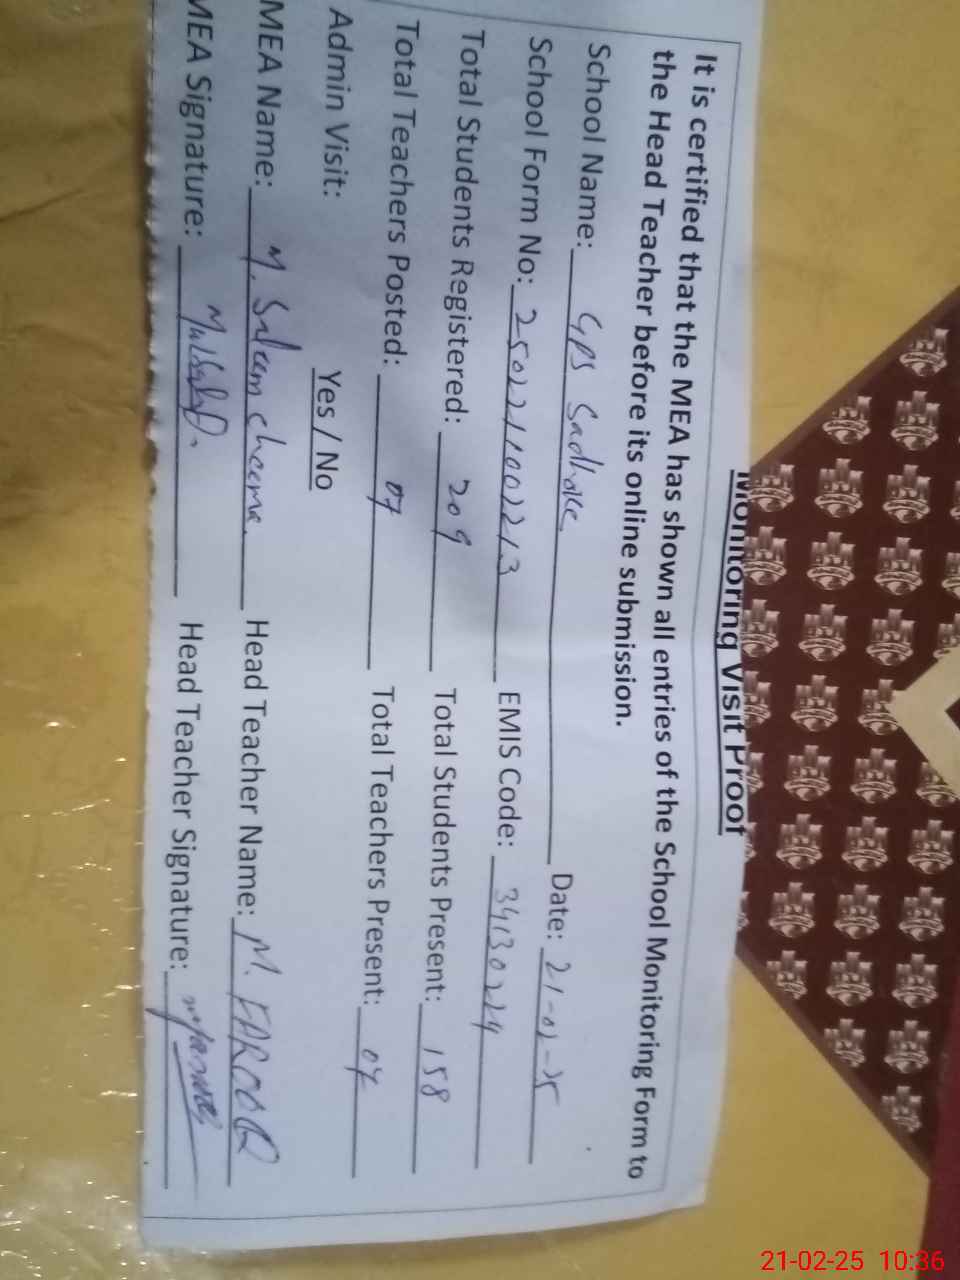 Monitoring Visit Proof
It is certified that the MEA has shown all entries of the School Monitoring Form to
the Head Teacher before its online submission.
School Name: GPS Sadhoke Date: 21-02-25
School Form No: 25022110022213 EMIS Code: 34130224
Total Students Registered: 209 Total Students Present: 158
Total Teachers Posted: 07 Total Teachers Present: 07
Admin Visit: Yes / No
MEA Name: M. Saleem cheema Head Teacher Name: M. FAROOQ
MEA Signature: Head Teacher Signature:
21-02-25 10:36